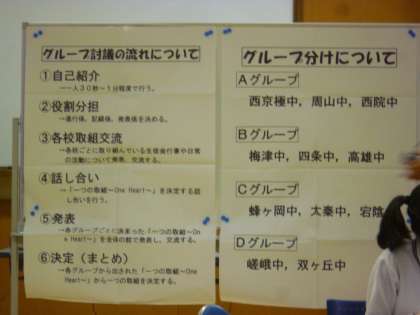 グループ討議の流れについて
①自己紹介
→一人30秒～1分程度で行う。
②役割分担
→進行係、記録係、発表係を決める。
③各校取組交流
→各校ごとに取り組んでいる生徒会行事や日常
の活動について発表、交流する。
④話し合い
→「一つの取組～One Heart～」を決定する話
し合いを行う。
⑤発表
→各グループごとに決まった「一つの取組～On
e Heart～」を全体の前で発表し、交流する。
⑥決定（まとめ）
→各グループから出された「一つの取組～One
Heart～」から一つの取組を決定する。
グループ分けについて
Aグループ
西京極中，周山中，西院中
Bグループ
梅津中，四条中，高雄中
Cグループ
蜂ヶ岡中，太秦中，宕陰
Dグループ
嵯峨中，双ヶ丘中